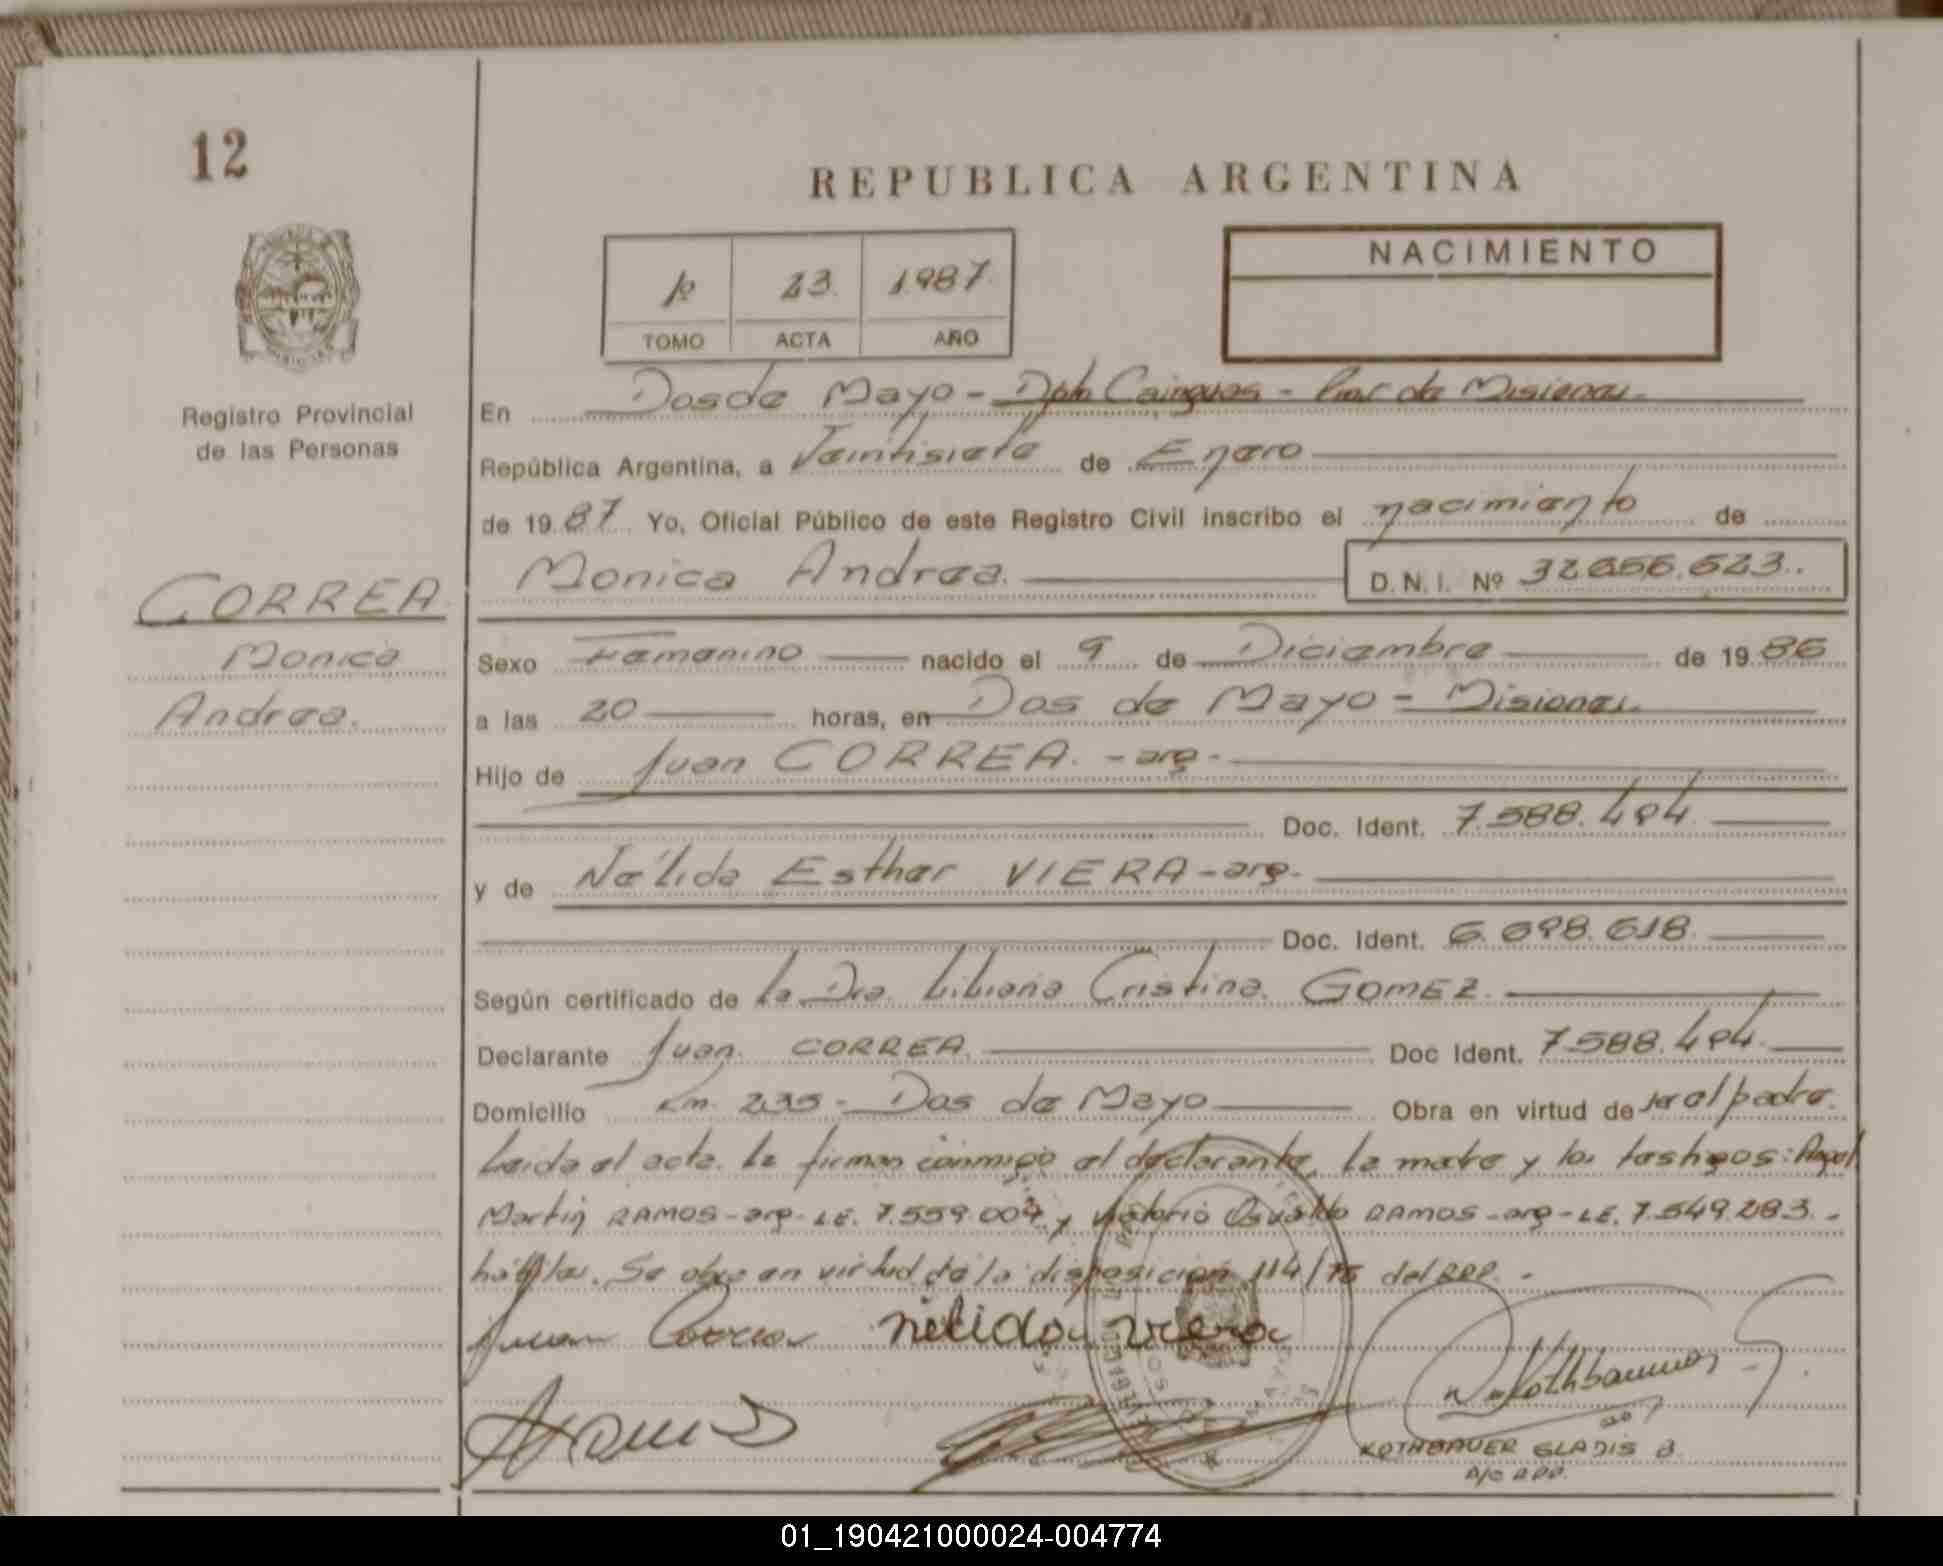 12
REPUBLICA ARGENTINA
NACIMIENTO
1º 23. 1987.
TOMO ACTA AÑO
Registro Provincial
de las Personas
En Dos de Mayo - Dpto Cainguas - Prov. de Misiones.
República Argentina, a Veintisiete de Enero
de 1987 Yo, Oficial Público de este Registro Civil inscribo el nacimiento de
Monica Andrea. D.N.I. Nº 32.656.523.
CORREA
Monica
Andrea.
Sexo Femenino nacido el 9 de Diciembre de 1986
a las 20 horas, en Dos de Mayo - Misiones.
Hijo de Juan CORREA. - arg -
Doc. Ident. 7.588.494
y de Nélida Esther VIERA - arg.
Doc. Ident. 6.698.618
Según certificado de la Dra. Liliana Cristina GOMEZ.
Declarante Juan CORREA Doc Ident. 7.588.494
Domicilio Km. 235 - Dos de Mayo Obra en virtud de ser el padre.
Leida el acta. La firman conmigo el declarante, la madre y los testigos: Angel
Martin RAMOS - arg - LE. 7.559.004 y Osvaldo RAMOS - arg - LE. 7.549.283. -
hábiles. Se obra en virtud de la disposicion 114/75 del RPP. -
Juan Correa nelida viera
KOTHBAUER GLADIS B.
A/C RPP.
01_190421000024-004774